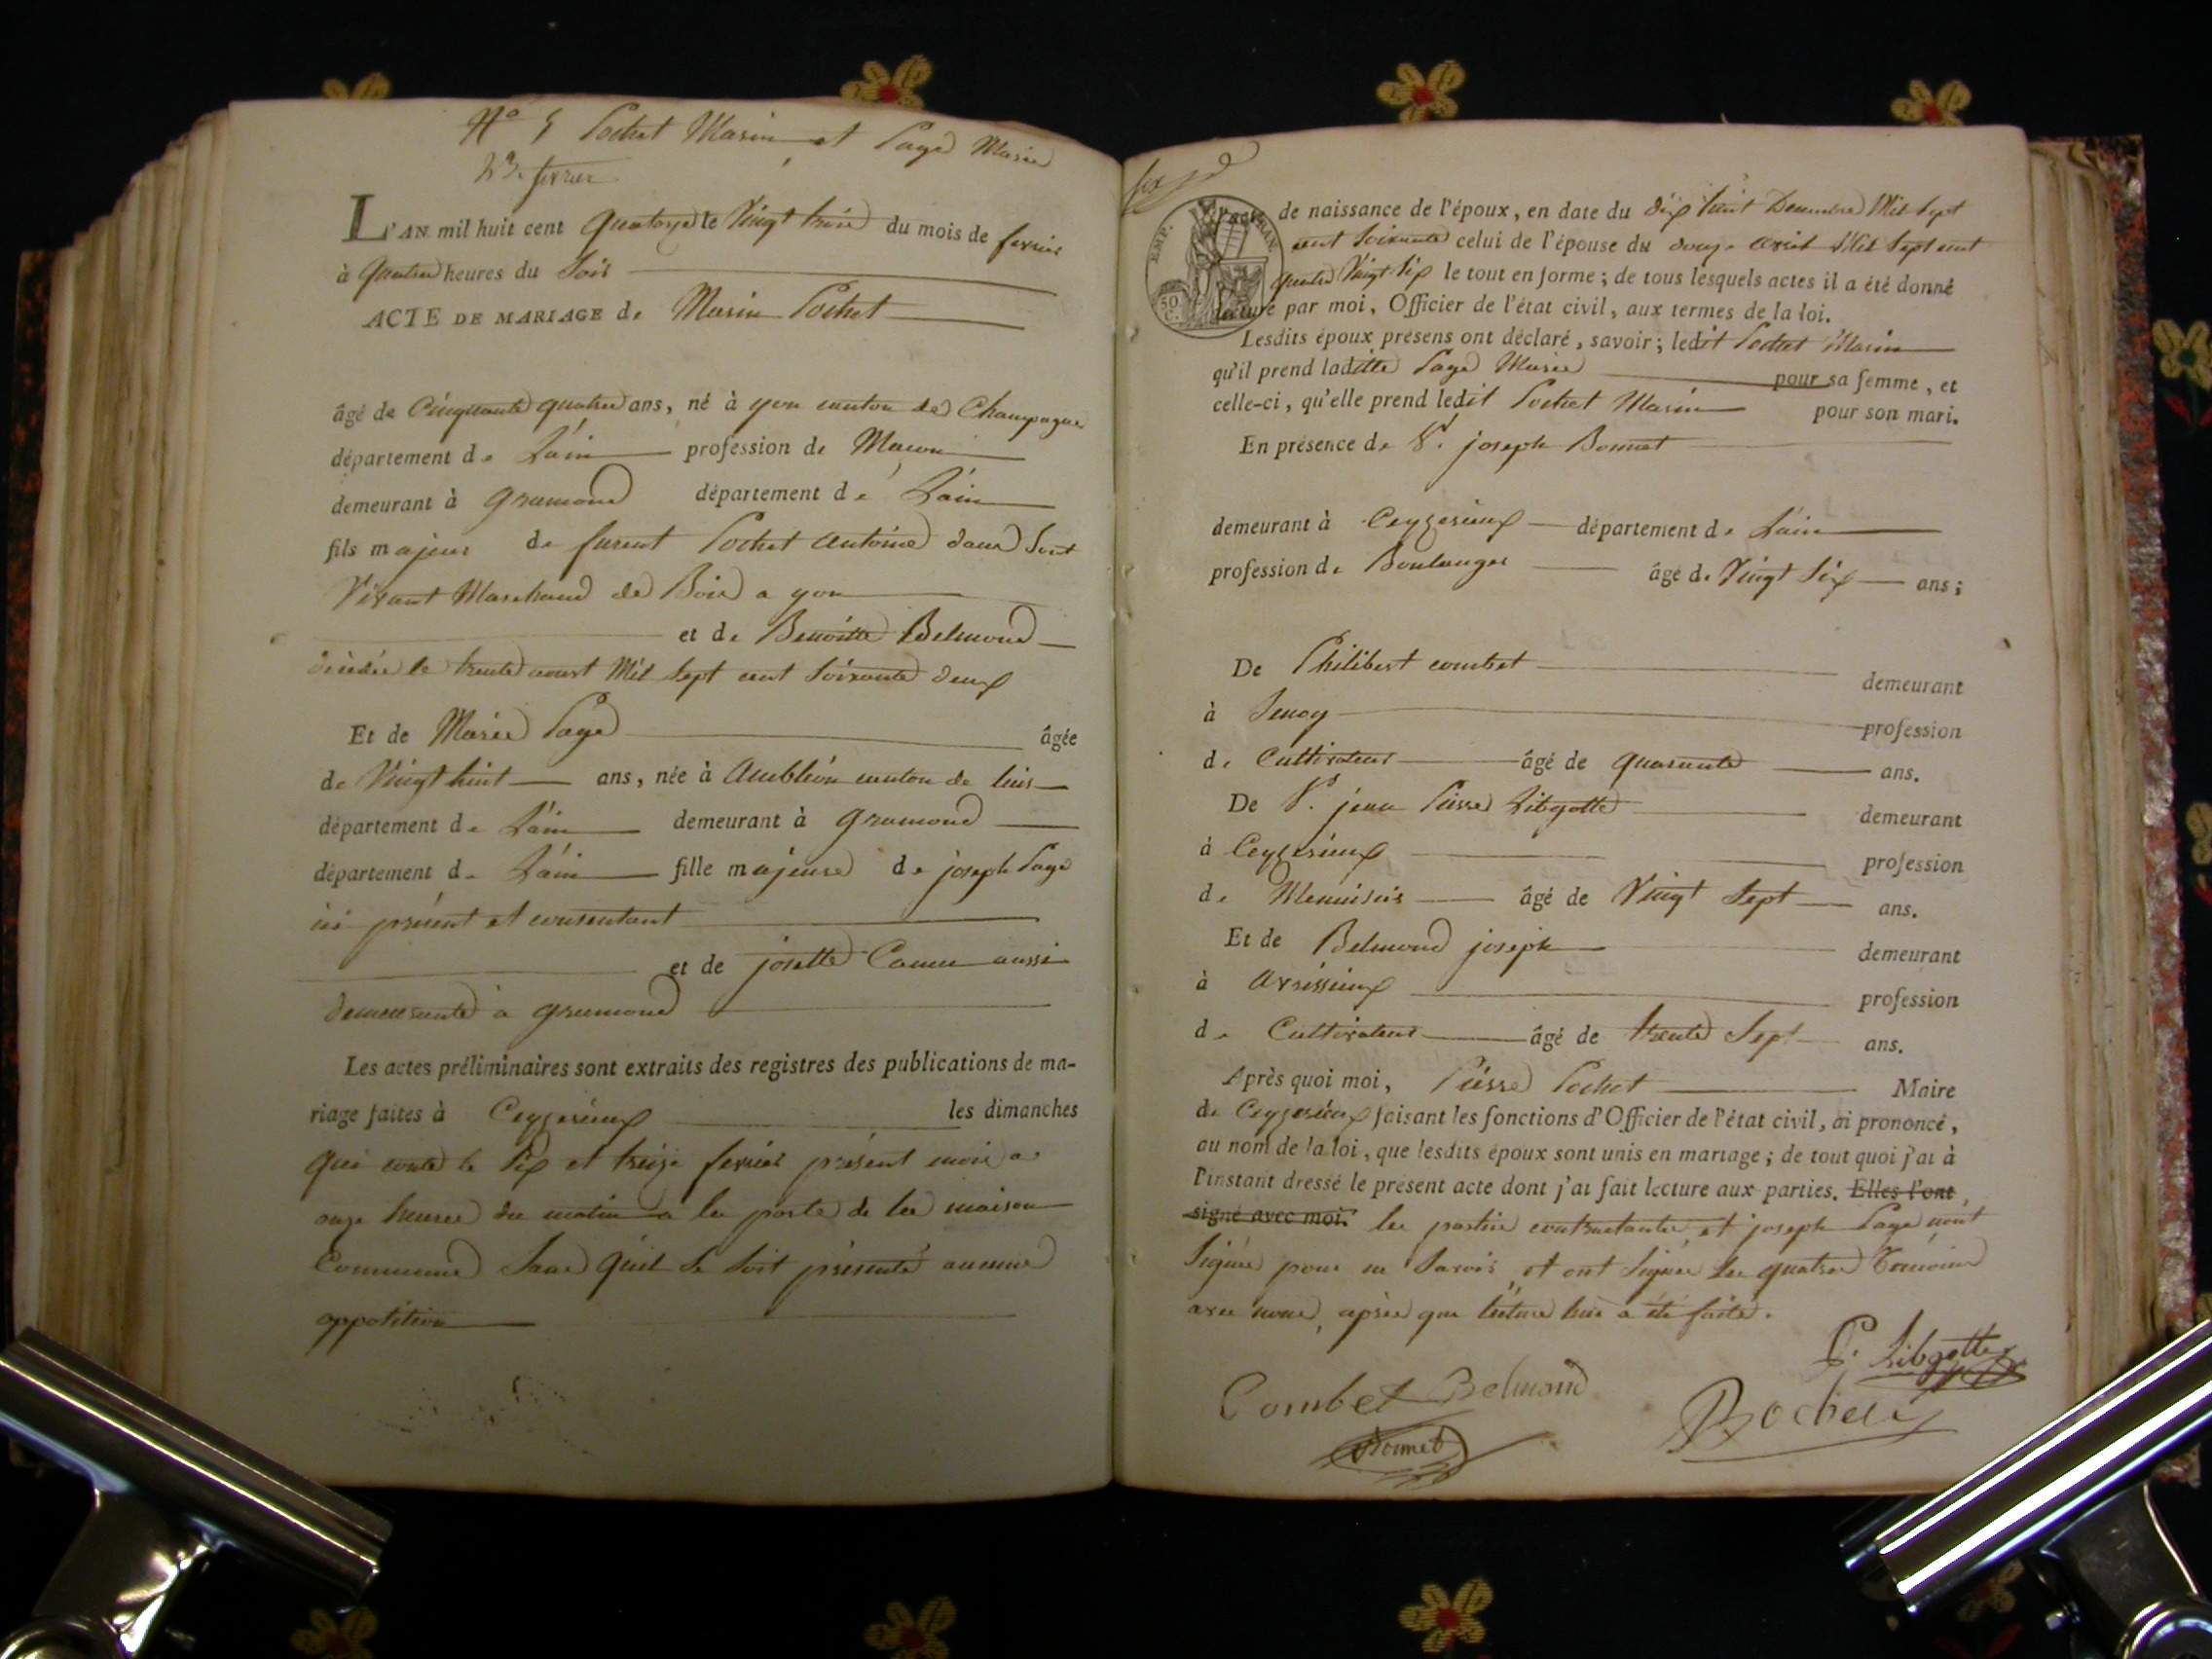 N° 5 Pochet Marin et Page Marie
23. fevrier
L'AN mil huit cent quatorze le Vingt trois du mois de fevrier
à quatre heures du Soir
ACTE DE MARIAGE de Marin Pochet
âgé de Cinquante quatre ans, né à yon canton de Champagne
département de Lain profession de Macon
demeurant à gramond département de Lain
fils majeur de furent Pochet Antoine dans Sont
Vivant Marchand de Bois a yon
et de Benoitte Belmond
décédée le trente aoust Mil Sept cent Soixante deux
Et de Marie Page âgée
de Vingt huit ans, née à Ambléon canton de
département de Lain demeurant à gramond
département de Lain fille majeure de joseph Page
ici présent et consentant
et de josette aussi
demeurante a gramond
Les actes préliminaires sont extraits des registres des publications de ma-
riage faites à Ceyzerieux les dimanches
qui conte le Six et treize fevrier présent mois a
onze heures du matin a la porte de la maison
Commune Sans quil Se Soit présenté aucune
oppotition
EMP. FRAN.
50 C.
de naissance de l'époux, en date du dix huit Decembre Mil Sept
cent Soixante celui de l'épouse du douze avril Mil Sept cent
quatre Vingt Six le tout en forme; de tous lesquels actes il a été donné
lecture par moi, Officier de l'état civil, aux termes de la loi.
Lesdits époux présens ont déclaré, savoir; ledit Pochet Marin
qu'il prend laditte Page Marie pour sa femme, et
celle-ci, qu'elle prend ledit Pochet Marin pour son mari.
En présence de S.r joseph Bonnet
demeurant à Ceyzerieux département de Lain
profession de Boulanger âgé de Vingt Six ans;
De Philibert combet demeurant
à profession
de Cultivateur âgé de quarante ans.
De S.r jean Pierre Libgotte demeurant
à Ceyzerieux profession
de Menuisier âgé de Vingt Sept ans.
Et de Belmond joseph demeurant
à Avrissieux profession
de Cultivateur âgé de trente Sept ans.
Après quoi moi, Pierre Pochet Maire
de Ceyzerieux faisant les fonctions d'Officier de l'état civil, ai prononcé,
au nom de la loi, que lesdits époux sont unis en mariage; de tout quoi j'ai à
l'instant dressé le présent acte dont j'ai fait lecture aux parties. Elles l'ont
signé avec moi. les parties contractantes, et joseph Page nont
Signés pour ne Savoir, et ont Signés les quatres Témoins
avec nous, après que lecture leur a été faite.
P. Libgotte
Combet Belmond
Bonnet